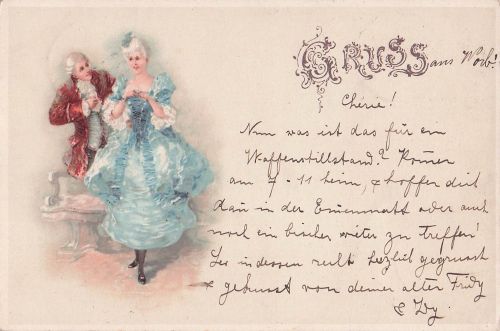 GRUSS aus Worb!
Chérie!
Nun was ist das für ein
Waffenstillstand? Komme
am 7-11 heim, & hoffe dich
dan in der Enenmatt oder auch
noch ein bischen weiter zu treffen!
Sei indessen recht herzlich gegrüsst
& geküsst von deiner alter Fridy
& Wy.